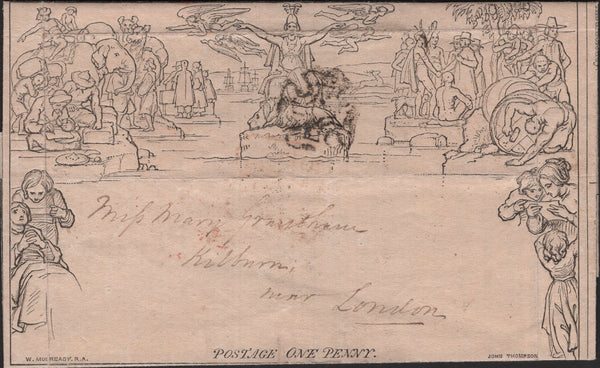 Miss Mary Grantham
Kilburn,
near London
POSTAGE ONE PENNY.
W. MULREADY. R.A.
JOHN THOMPSON